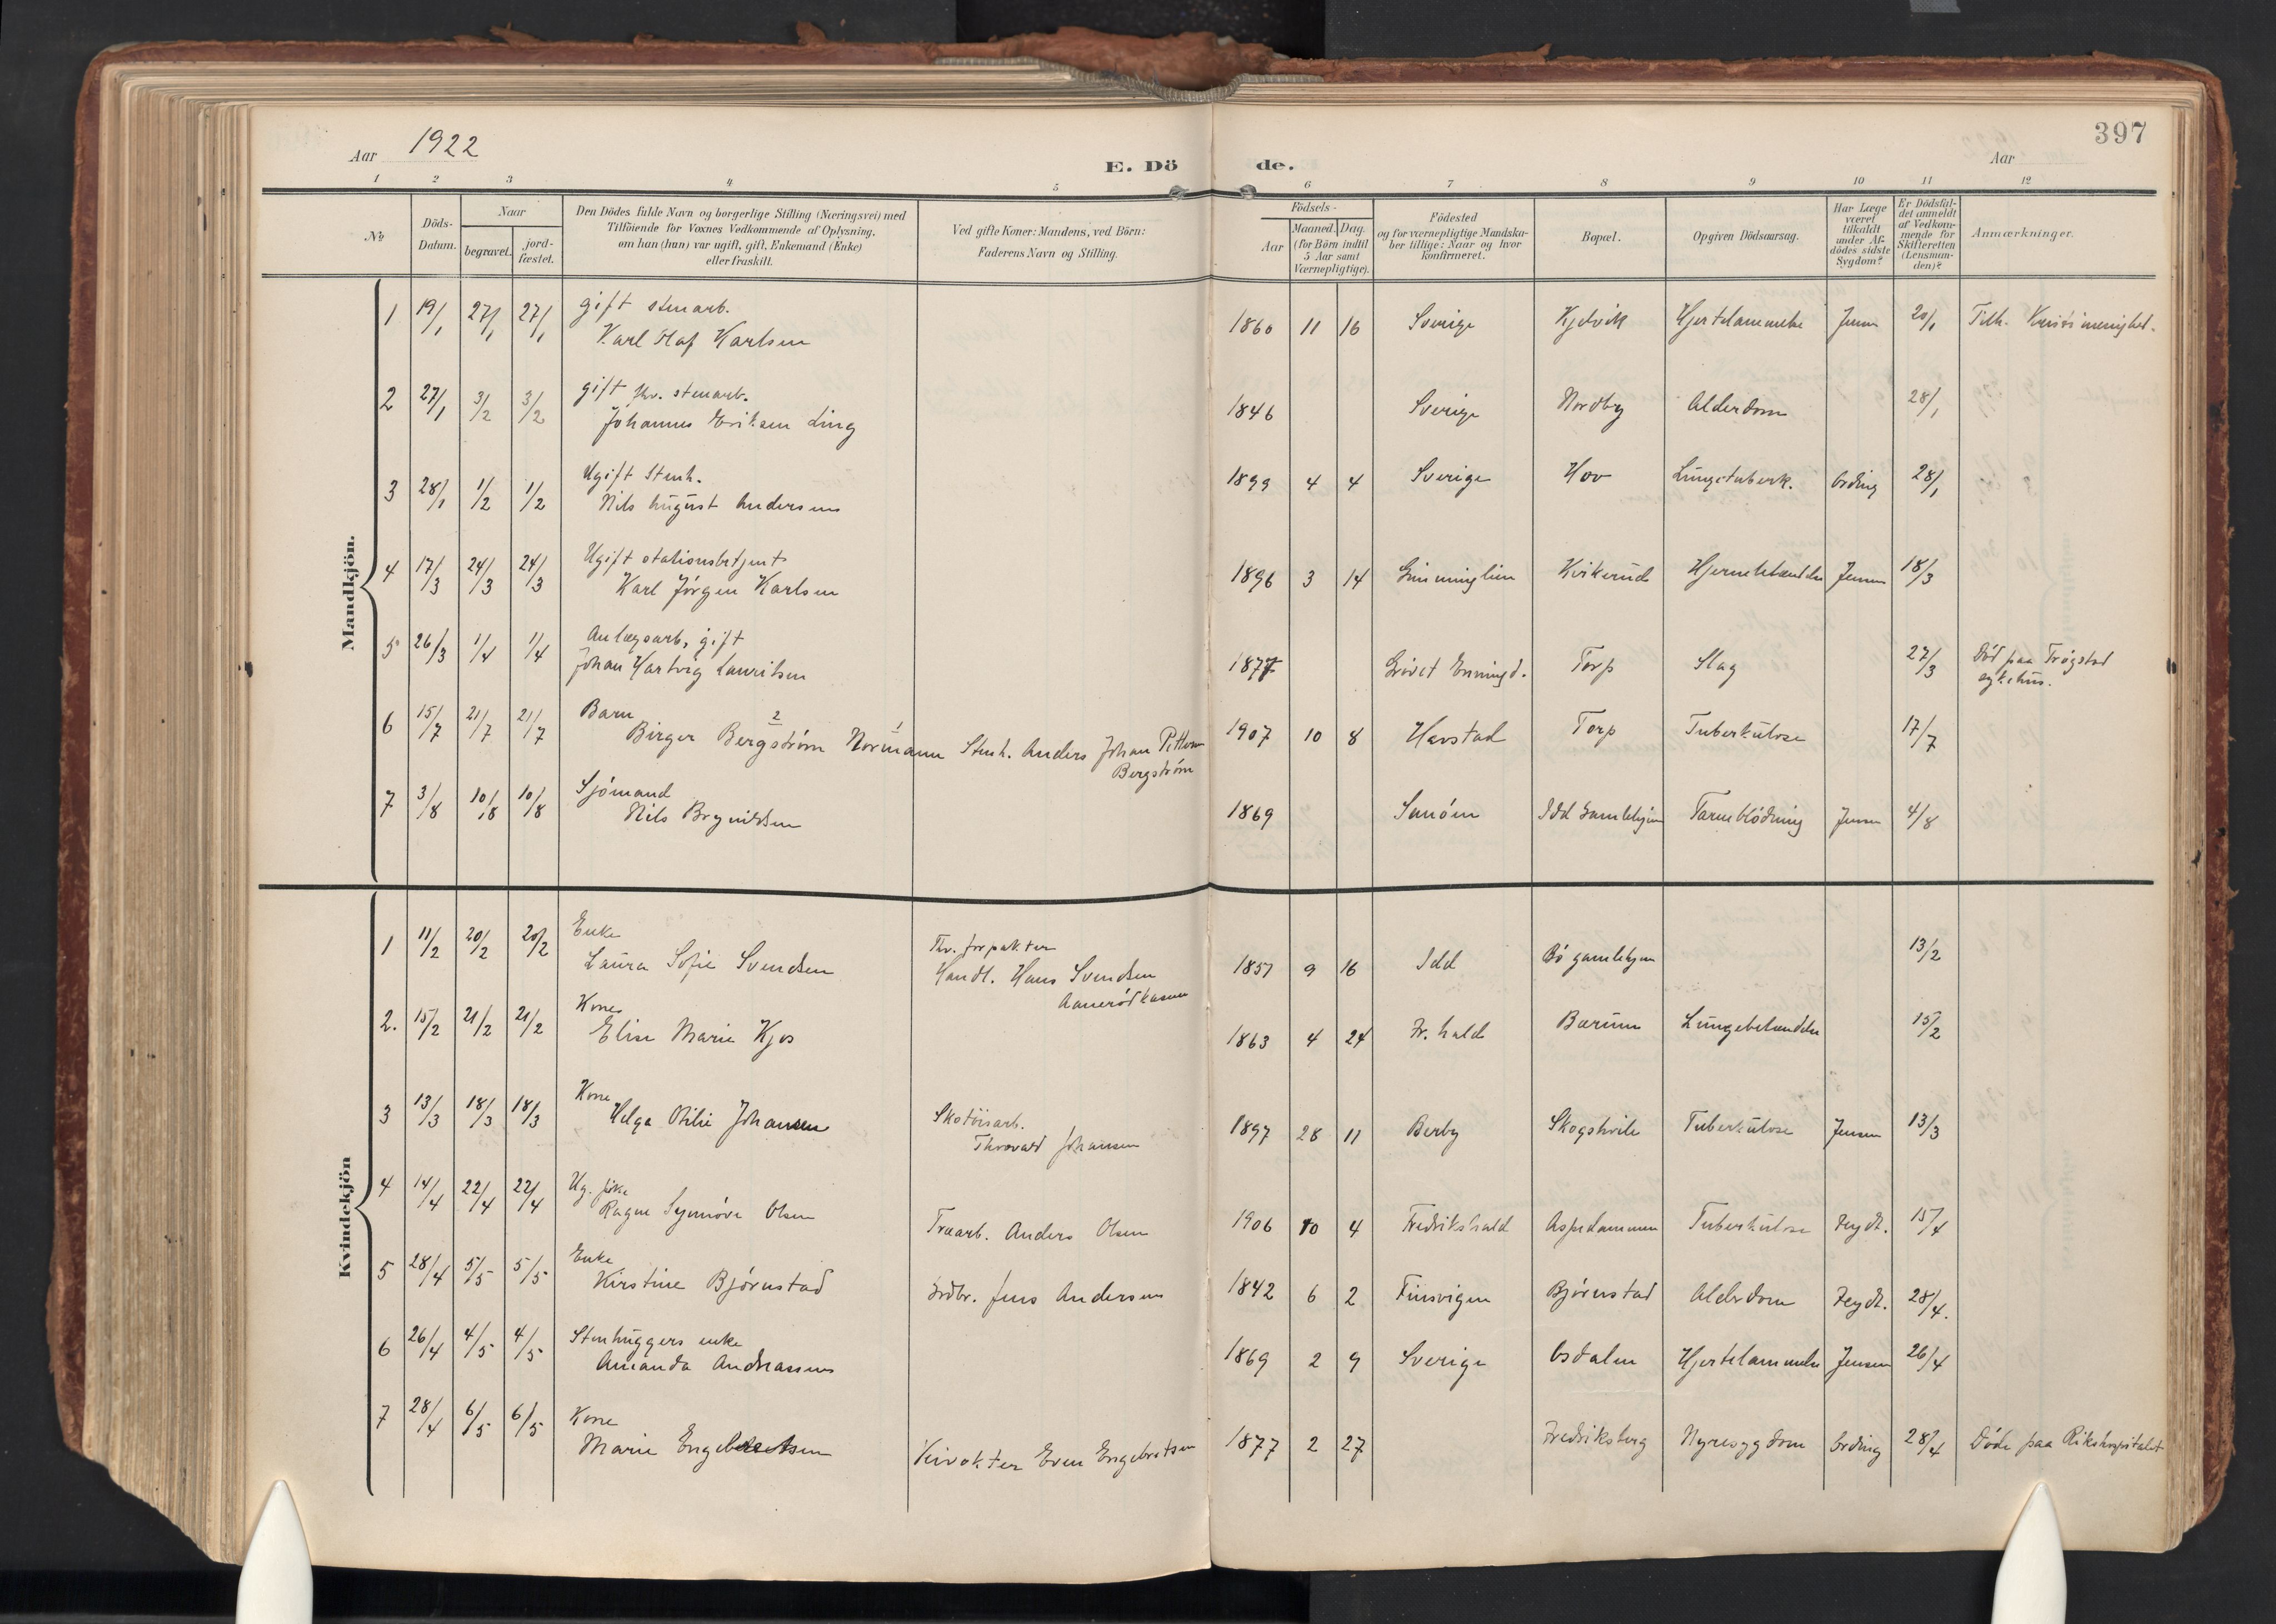 Aar 1922
E. Döde.
Aar
397
1 2 3 4 5 6 7 8 9 10 11 12
№
Döds-Datum.
Naar
begravet.
jord-fæstet.
Den Dödes fulde Navn og borgerlige Stilling (Næringsvei) med
Tilföiende for Voxnes Vedkommende af Oplysning,
om han (hun) var ugift, gift, Enkemand (Enke)
eller fraskilt.
Ved gifte Koner: Mandens, ved Börn:
Faderens Navn og Stilling.
Födsels-
Aar
Maaned. Dag.
(for Börn indtil
5 Aar samt
Værnepligtige).
Födested
og for værnepligtige Mandska-
ber tillige: Naar og hvor
konfirmeret.
Bopæl.
Opgiven Dödsaarsag.
Har Læge
været
tilkaldt
under Af-
dödes sidste
Sygdom?
Er Dödsfal-
det anmeldt
af Vedkom-
mende for
Skifteretten
(Lensman-
den)?
Anmærkninger.
Mandkjön.
1 19/1 27/1 27/1 gift stenarb.
Karl Olaf Karlsen 1860 11 16 Sverige Kjelvik Hjertelammelse Jensen 20/1 Tilh. Kristi menighed.
2 27/1 3/2 3/2 gift fhv. stenarb.
Johannes Eriksen Ling 1846 Sverige Nordby Alderdom 28/1
3 28/1 1/2 1/2 Ugift Stenh.
Nils August Andersen 1899 4 4 Sverige Hov Lungetuberk. Ording 28/1
4 17/3 24/3 24/3 Ugift stationsbetjent
Karl Jörgen Karlsen 1896 3 14 Kirkerud Hjernebetændelse Jensen 18/3
5 26/3 1/4 1/4 Anlægsarb, gift
Johan Hartvig Lauritsen 1877 Enningd. Torp Slag 27/3 Död paa Trögstad
sykehus.
6 15/7 21/7 21/7 Barn
2 1
Birger Bergström Normann Stenh. Anders Johan Pettersen
Bergström 1907 10 8 Havstad Torp Tuberkulose 17/7
7 3/8 10/8 10/8 Sjömand
Nils Brynildsen 1869 Idd Gamlehjem Tarmblödning Jensen 4/8
Kvindekjön
1 11/2 20/2 20/2 Enke
Laura Sofie Svendsen Fhv. forpakter
Handl. Hans Svendsen
1857 9 16 Idd Bö gamlehjem 13/2
2. 15/2 21/2 21/2 Kone
Elise Marie Kjos 1863 4 24 Fr. hald Bærum Lungebetændelse 15/2
3 13/3 18/3 18/3 Kone
Helga Otilie Johansen Skotöisarb.
Thorvald Johansen 1897 28 11 Berby Skogshvile Tuberkulose Jensen 13/3
4 14/4 22/4 22/4 Ug. pike
Ragna Synnöve Olsen Træarb. Anders Olsen 1906 10 4 Fredrikshald Aspedammen Tuberkulose Feydt. 15/4
5 28/4 5/5 5/5 Enke
Kirstine Björnstad Grdbr. Jens Andersen 1842 6 2 Finsvigen Björnstad Alderdom Feydt. 28/4.
6 26/4 4/5 4/5 Stenhuggers enke
Amanda Andreassen 1869 2 9 Sverige Osdalen Hjertelammelse Jensen 26/4
7 28/4 6/5 6/5 Kone
Marie Engebretsen Veivokter Even Engebretsen 1877 2 27 Fredriksberg Nyresygdom Ording 28/4 Döde paa Rikshospitalet